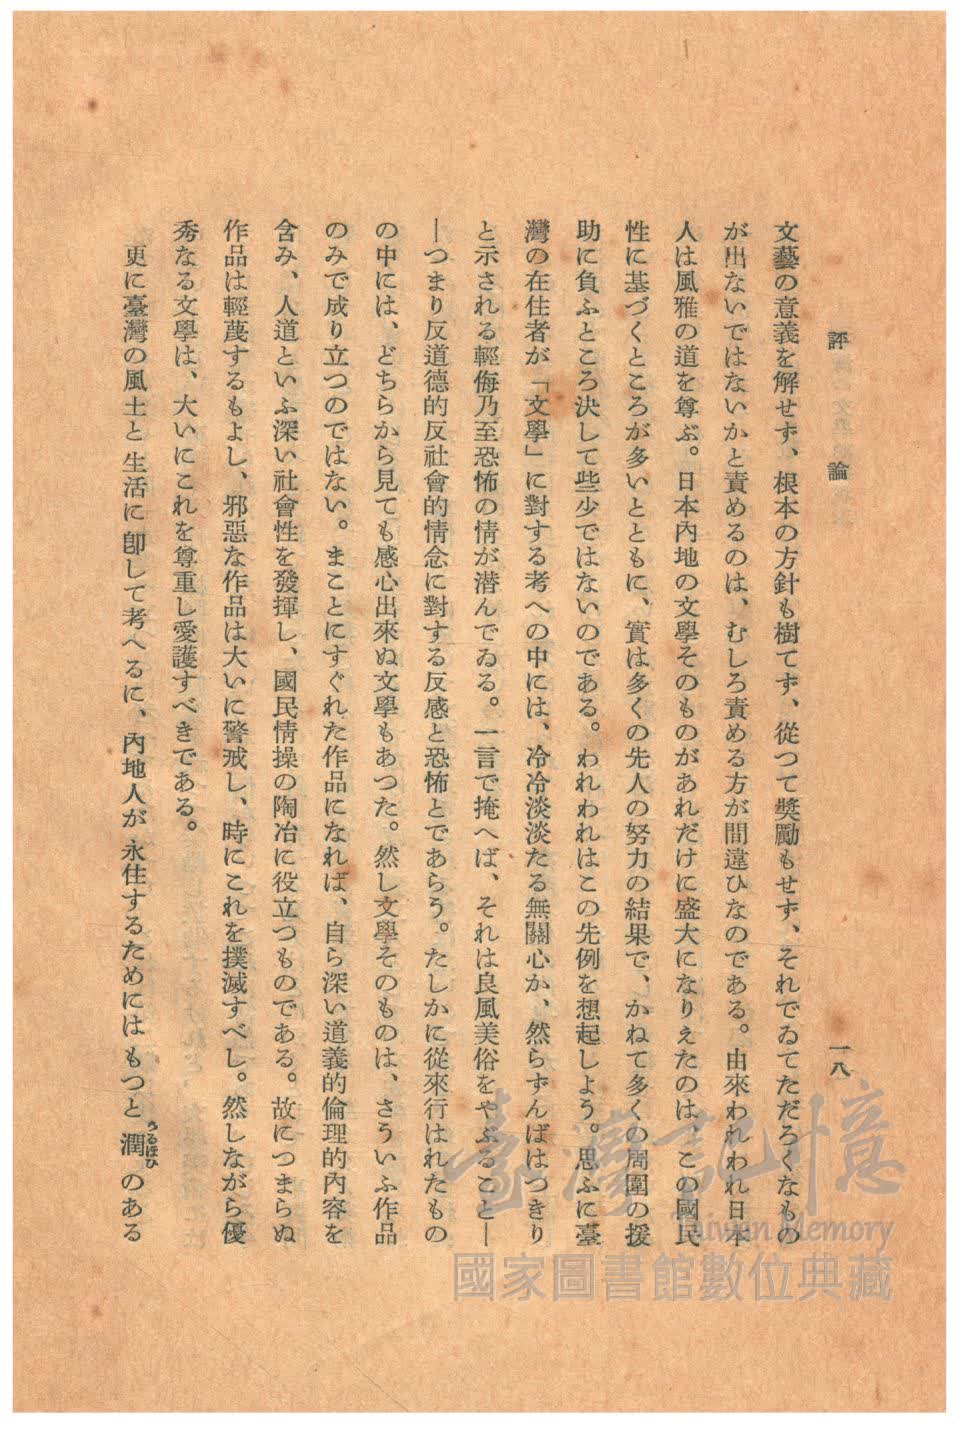 評論
一八
文藝の意義を解せず、根本の方針も樹てず、從つて奬勵もせず、それでゐてただろくなもの
が出ないではないかと責めるのは、むしろ責める方が間違ひなのである。由來われわれ日本
人は風雅の道を尊ぶ。日本內地の文學そのものがあれだけに盛大になりえたのは、この國民
性に基づくところが多いとともに、實は多くの先人の努力の結果で、かねて多くの周圍の援
助に負ふところ決して些少ではないのである。われわれはこの先例を想起しよう。思ふに臺
灣の在住者が「文學」に對する考への中には、冷冷淡淡たる無關心か、然らずんばはつきり
と示される輕侮乃至恐怖の情が潜んでゐる。一言で掩へば、それは良風美俗をやぶること—
—つまり反道德的反社會的情念に對する反感と恐怖とであらう。たしかに從來行はれたもの
の中には、どちらから見ても感心出來ぬ文學もあつた。然し文學そのものは、さういふ作品
のみで成り立つのではない。まことにすぐれた作品になれば、自ら深い道義的倫理的內容を
含み、人道といふ深い社會性を發揮し、國民情操の陶冶に役立つものである。故につまらぬ
作品は輕蔑するもよし、邪惡な作品は大いに警戒し、時にこれを撲滅すべし。然しながら優
秀なる文學は、大いにこれを尊重し愛護すべきである。
更に臺灣の風土と生活に卽して考へるに、內地人が永住するためにはもつと潤うるほひのある
臺灣記憶
Taiwan Memory
國家圖書館數位典藏